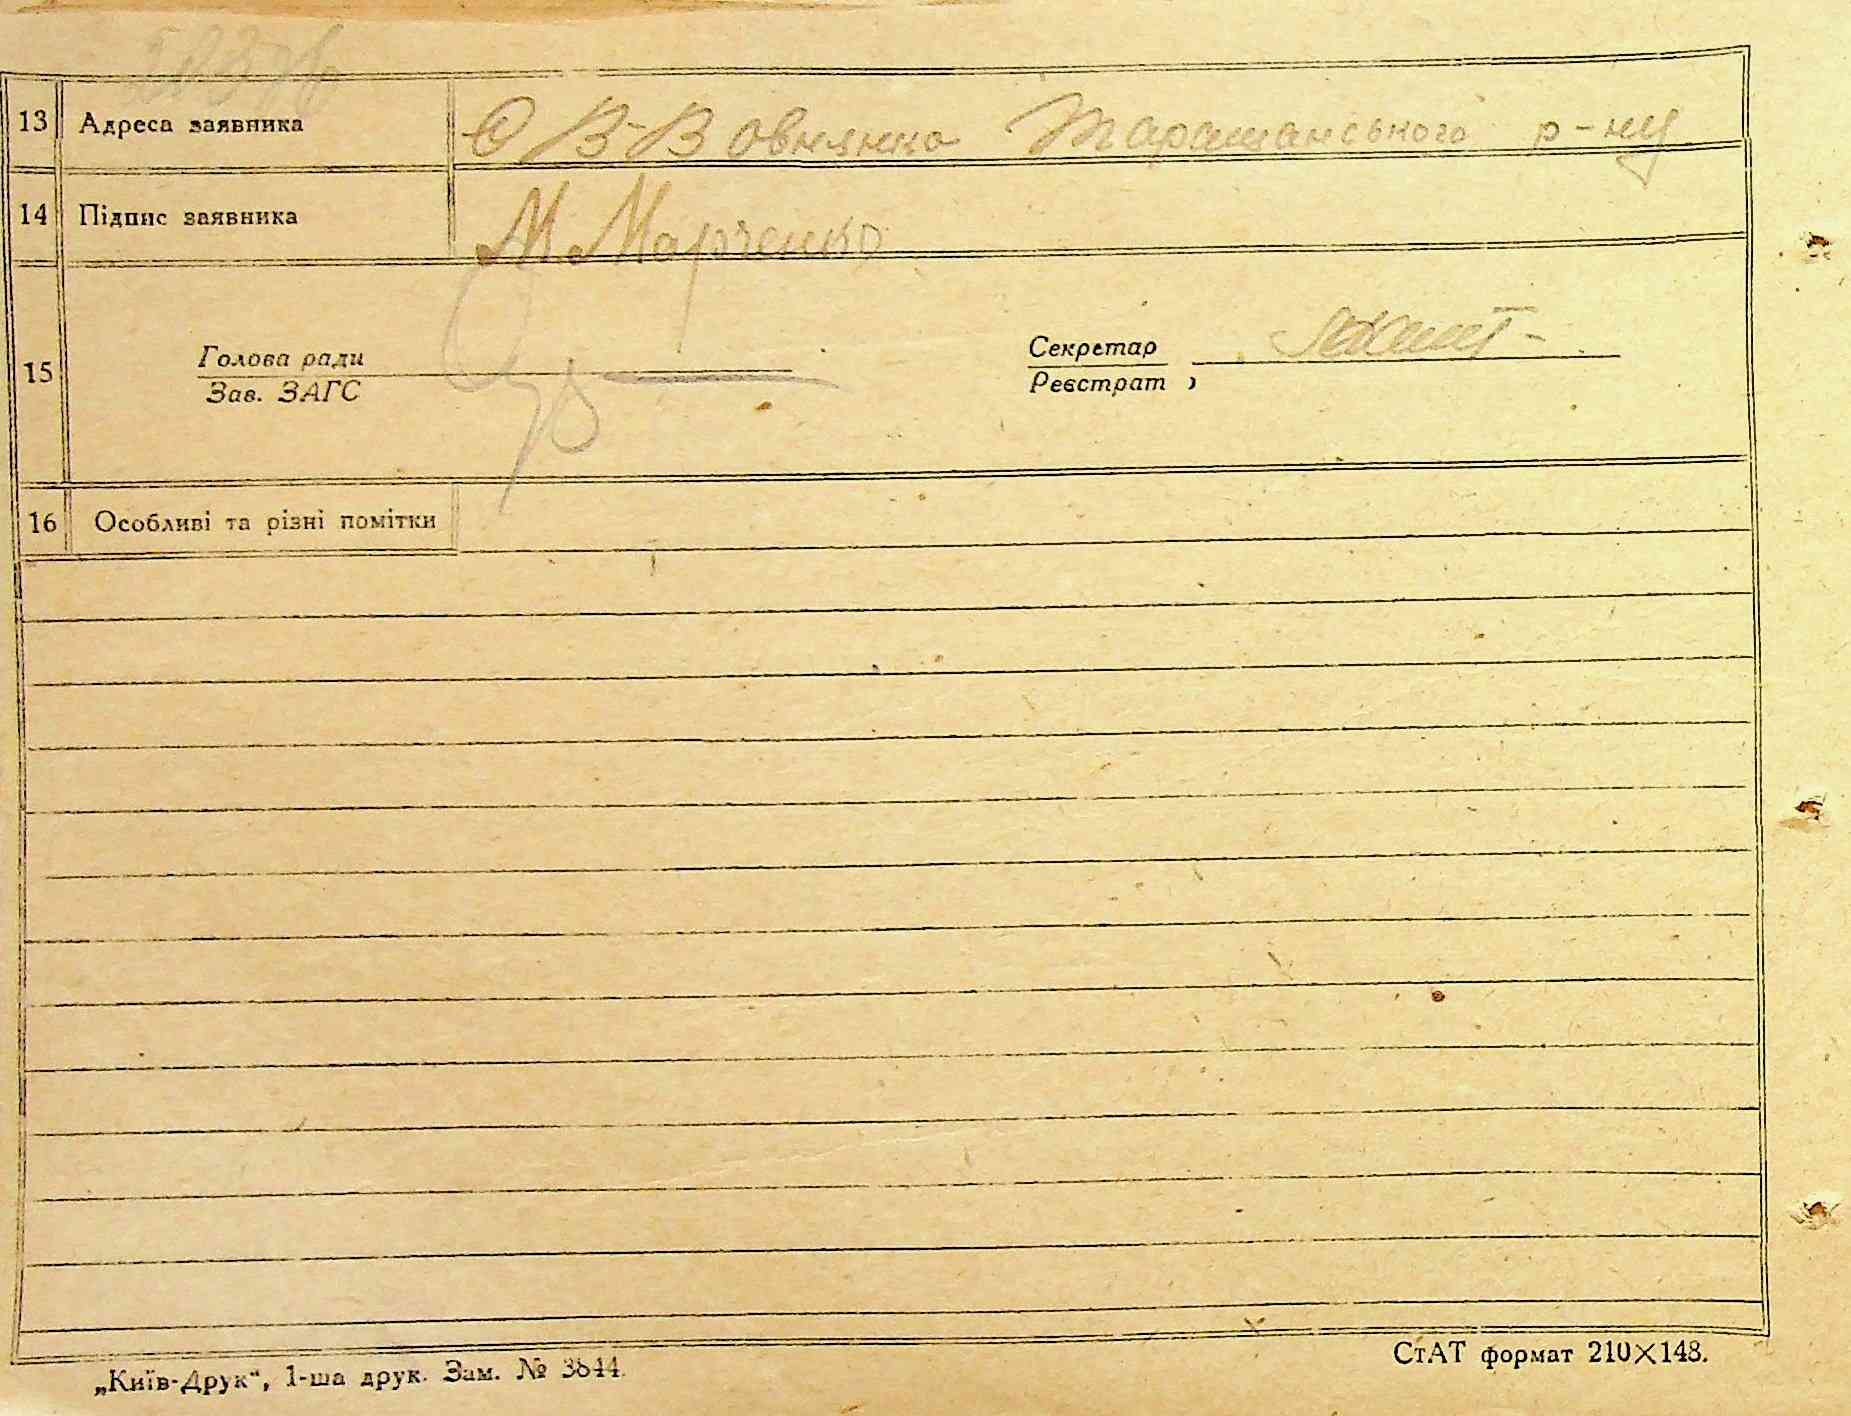 13 Адреса заявника С В-Вовнянка Таращанського р-ну
14 Підпис заявника М. Марченко
15
Голова ради
Зав. ЗАГС
Секретар
Реєстрат
16 Особливі та різні помітки
„Київ-Друк“, 1-ша друк. Зам. № 3844.
СтАТ формат 210×148.